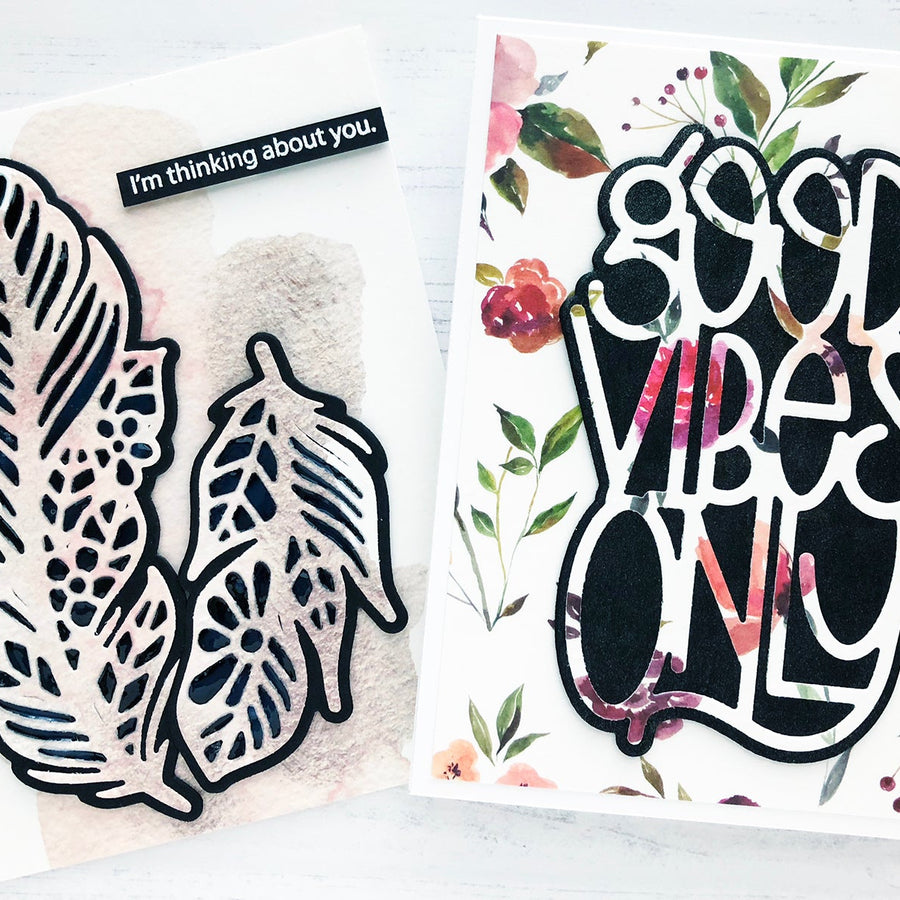 I'm thinking about you.
good
VIBES
ONLY